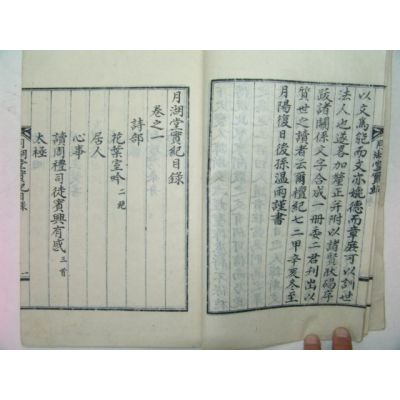 以文爲能而文亦媲德而章庶可以訓世
法人也遂畧加釐正并附以諸賢狀碣序
跋諸關係文字合成一冊委二君刊出以
質世之讀者云爾檀紀七二甲辛亥冬至
月陽復日後孫溫雨謹書
月湖堂實紀
月湖堂實紀目錄
卷之一
詩部
花葉室吟 二絶
居人
心事
讀周禮司徒賓興有感 三首
太極
月湖堂實紀目錄
一